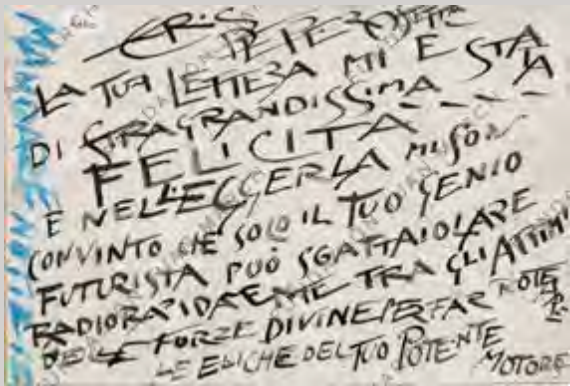 LA TUA LETTERA MI È STATA
DI STRAGRANDISSIMA
FELICITÀ
E NELL'EGGERLA MI SON
CONVINTO CHE SOLO IL TUO GENIO
FUTURISTA PUÒ SGATTAIOLARE
RADIORAPIDAEME TRA GLI ATTIMI
DELLE FORZE DIVINE PER FAR
LE ELICHE DEL TUO POTENTE
MOTORE